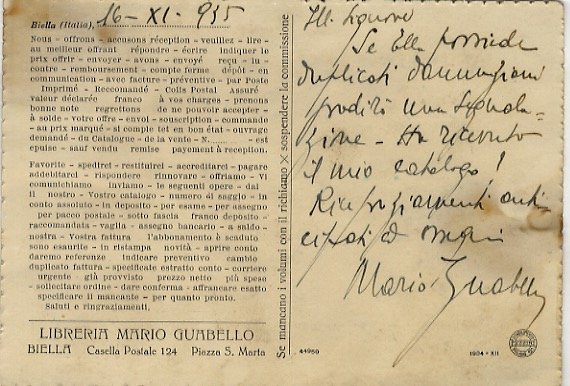 Biella (Italia), 16 - XI - 935
Nous - offrons - accusons réception - veuillez - lire -
au meilleur offrant répondre - écrire indiquer le
prix offrir - envoyer - avons - envoyé reçu - lu -
contre - remboursement - compte ferme dépôt - en
communication - avec facture - préventive - par Poste
Imprimé - Reccomandé - Colis Postal Assuré
valeur déclarée franco à vos charges - prenons
bonne note regrettons de ne pouvoir accepter -
à solde - votre offre - envoi - souscription - commande
- au prix marqué - si compte tet en bon état - ouvrage
demandé - du Catalogue - de la vente - N. ........ - est
epuise - sauf vendu remise payement à reception.
Favorite - spedirei - restituirei - accreditarei - pagare
addebitarei - rispondere rinnovare - offriamo - Vi
comunichiamo inviamo - le seguenti opere - dal
il nostro - Vostro catalogo - numero di saggio - in
conto assoluto - in deposito - per esame - per assegno
- per pacco postale - sotto fascia franco deposito -
raccomandata - vaglia - assegno bancario - a saldo -
nostra - Vostra fattura l'abbonamento è scaduto
sono esaurite - in ristampa novità - aprire conto
daremo referenze indicare preventivo cambio
duplicato fattura - specificate estratto conto - corriere
urgente già provvisto prezzo netto più spese
- sollecitare ordine - dare conferma - affrancare esatto
specificare il mancante - per quanto pronto.
Saluti e ringraziamenti.
LIBRERIA MARIO GUABELLO
BIELLA Casella Postale 124 Piazza S. Marta
Se mancano i volumi con il richiamo × sospendere la commissione
Ill. Signore
Se Ella possiede
duplicati dannunziani
gradirò una segnala-
zione - Ha ricevuto
il mio catalogo!
Ringraziamenti anti-
cipati ed omaggi
Mario Guabello
44950
1934 - XII